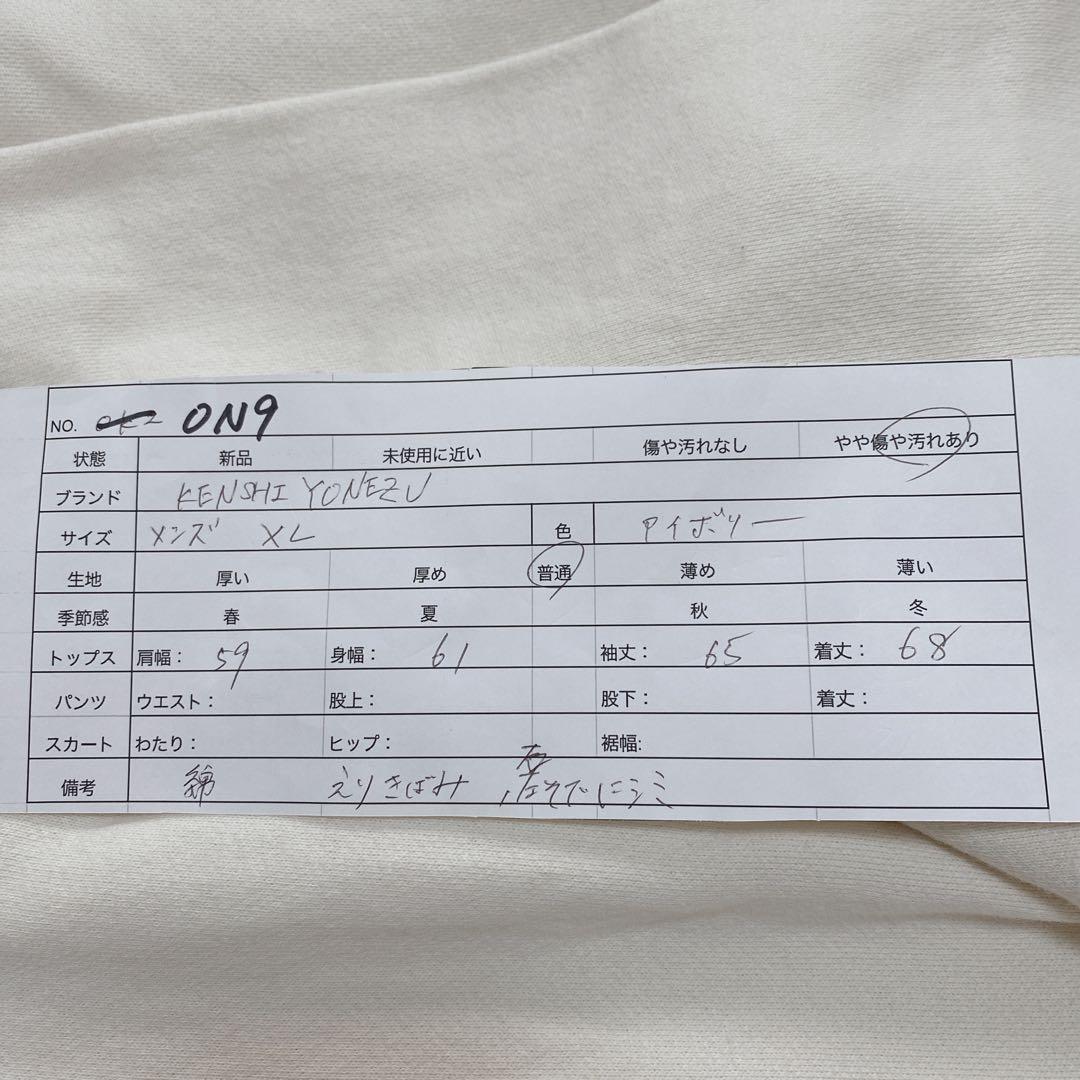 NO. ON9
状態 新品 未使用に近い 傷や汚れなし やや傷や汚れあり
ブランド KENSHI YONEZU
サイズ メンズ XL 色 アイボリー
生地 厚い 厚め 普通 薄め 薄い
季節感 春 夏 秋 冬
トップス 肩幅: 59 身幅: 61 袖丈: 65 着丈: 68
パンツ ウエスト: 股上: 股下: 着丈:
スカート わたり: ヒップ: 裾幅:
備考 綿 えりきばみ 右そでにシミ